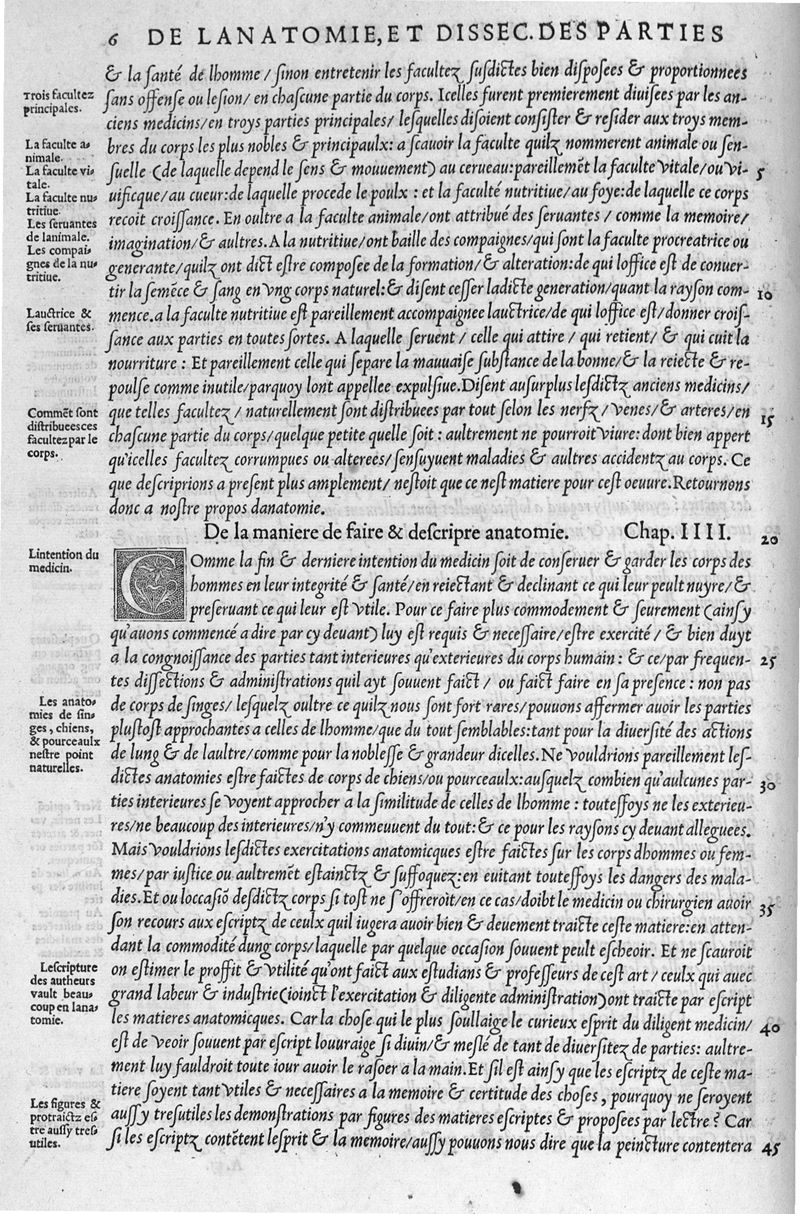 6 DE LANATOMIE, ET DISSEC. DES PARTIES
& la santé de lhomme/ sinon entretenir les facultez susdictes bien disposees & proportionnees
Trois facultez
principales.
sans offense ou lesion/ en chascune partie du corps. Icelles furent premierement diuisees par les an-
ciens medicins/en troys parties principales/ lesquelles disoient consister & resider aux troys mem-
La faculte a-
nimale.
bres du corps les plus nobles & principaulx: a scauoir la faculte quilz nommerent animale ou sen-
La faculte vi-
tale.
suelle (de laquelle depend le sens & mouuement) au cerueau:pareillemẽt la faculte vitale/ou vi- 5
La faculte nu-
tritiue.
uificque/au cueur:de laquelle procede le poulx : et la faculté nutritiue/au foye:de laquelle ce corps
Les seruantes
de lanimale.
recoit croissance. En oultre a la faculte animale/ont attribué des seruantes / comme la memoire/
Les compai-
gnes de la nu-
tritiue.
imagination/& aultres. A la nutritiue/ont baille des compaignes/qui sont la faculte procreatrice ou
generante/quilz ont dict estre composee de la formation/& alteration:de qui loffice est de conuer-
tir la semẽce & sang en vng corps naturel:& disent cesser ladicte generation/quant la rayson com- 10
Lauctrice &
ses seruantes.
mence.a la faculte nutritiue est pareillement accompaignee lauctrice/de qui loffice est/donner crois-
sance aux parties en toutes sortes. A laquelle seruent / celle qui attire / qui retient/ & qui cuit la
nourriture : Et pareillement celle qui separe la mauuaise substance de la bonne/& la reiecte & re-
poulse comme inutile/parquoy lont appellee expulsiue.Disent ausurplus lesdictz anciens medicins/
Commẽt sont
distribuees ces
facultez par le
corps.
que telles facultez / naturellement sont distribuees par tout selon les nerfz / venes/& arteres/en 15
chascune partie du corps/quelque petite quelle soit : aultrement ne pourroit viure: dont bien appert
qu'icelles facultez corrumpues ou alterees/ sensuyuent maladies & aultres accidentz au corps. Ce
que descriprions a present plus amplement/ nestoit que ce nest matiere pour cest oeuure.Retournons
donc a nostre propos danatomie.
De la maniere de faire & descripre anatomie. Chap. IIII. 20
Lintention du
medicin.
Comme la fin & derniere intention du medicin soit de conseruer & garder les corps des
hommes en leur integrité & santé/en reiectant & declinant ce qui leur peult nuyre/&
preseruant ce qui leur est vtile. Pour ce faire plus commodement & seurement (ainsy
qu'auons commencé a dire par cy deuant) luy est requis & necessaire/estre exercité / & bien duyt
a la congnoissance des parties tant interieures qu'exterieures du corps humain : & ce/par frequen- 25
tes dissections & administrations quil ayt souuent faict / ou faict faire en sa presence : non pas
Les anato-
mies de sin-
ges, chiens,
& pourceaulx
nestre point
naturelles.
de corps de singes/ lesquelz oultre ce quilz nous sont fort rares/pouuons affermer auoir les parties
plustost approchantes a celles de lhomme/que du tout semblables:tant pour la diuersité des actions
de lung & de laultre/comme pour la noblesse & grandeur dicelles. Ne vouldrions pareillement les-
dictes anatomies estre faictes de corps de chiens/ou pourceaulx:ausquelz combien qu'aulcunes par- 30
ties interieures se voyent approcher a la similitude de celles de lhomme : touteffoys ne les exterieu-
res/ne beaucoup des interieures/n'y commeuuent du tout:& ce pour les raysons cy deuant alleguees.
Mais vouldrions lesdictes exercitations anatomicques estre faictes sur les corps dhommes ou fem-
mes/par iustice ou aultremẽt estainctz & suffoquez:en euitant touteffoys les dangers des mala-
dies.Et ou loccasiõ desdictz corps si tost ne s'offreroit/en ce cas/doibt le medicin ou chirurgien auoir 35
son recours aux escriptz de ceulx quil iugera auoir bien & deuement traicte ceste matiere:en atten-
dant la commodité dung corps/laquelle par quelque occasion souuent peult escheoir. Et ne scauroit
Lescripture
des autheurs
vault beau-
coup en lana-
tomie.
on estimer le proffit & vtilité qu'ont faict aux estudians & professeurs de cest art / ceulx qui auec
grand labeur & industrie(ioinct l'exercitation & diligente administration)ont traicte par escript
les matieres anatomicques. Car la chose qui le plus soullaige le curieux esprit du diligent medicin/ 40
est de veoir souuent par escript louuraige si diuin/& meslé de tant de diuersitez de parties: aultre-
ment luy fauldroit toute iour auoir le rasoer a la main.Et sil est ainsy que les escriptz de ceste ma-
tiere soyent tant vtiles & necessaires a la memoire & certitude des choses, pourquoy ne seroyent
Les figures &
protraictz es-
tre aussy tres-
utiles.
aussy tresutiles les demonstrations par figures des matieres escriptes & proposees par lectre ? Car
si les escriptz contẽtent lesprit & la memoire/aussy pouuons nous dire que la peincture contentera 45